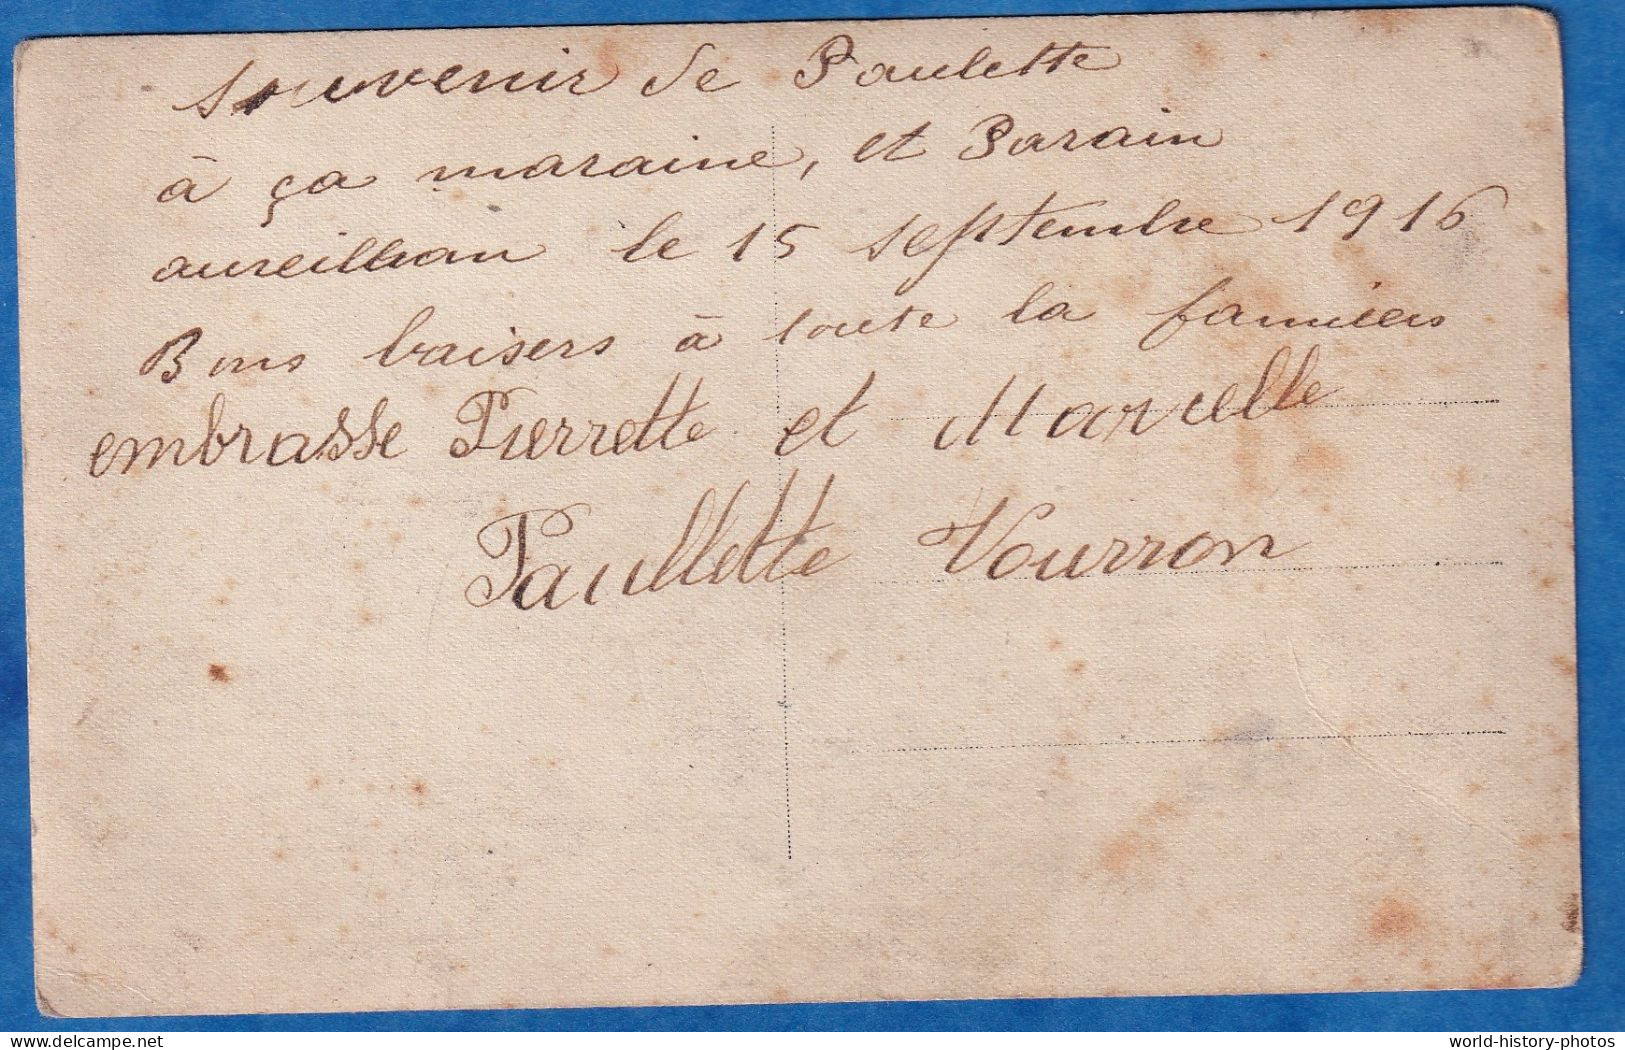 souvenir de Paulette
à ça maraine, et Parain
aureilhan le 15 septembre 1916
Bons baisers à toute la
embrasse Pierrette et Marcelle
Paullette Vourron
world-history-photos